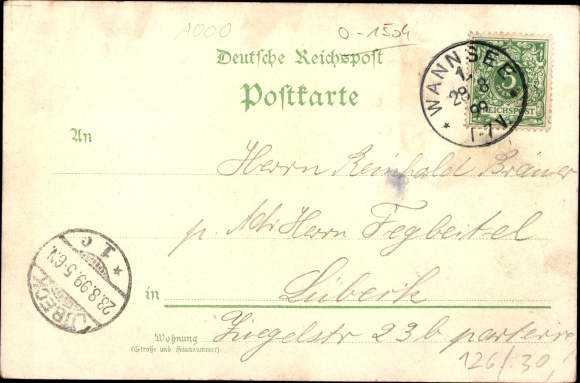 1000
0-1504
Deutsche Reichspost
Postkarte
WANNSEE
28 8
99
1-7V.
5
REICHSPOST
An
Herrn Reinhold Bräuer
p. Adr Herrn Fegbeitel
in Lübeck
Wohnung Ziegelstr 23b parterre
(Straße und Hausnummer)
LÜBECK
28.8.99.5-6N
1 c
126/30,